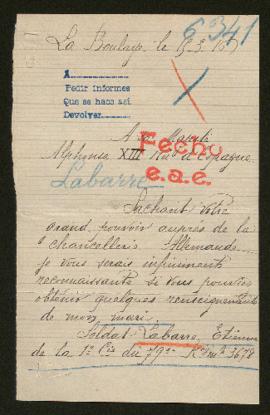 6341
La Boulaye le 15.3.16
A
Pedir informes
Que se hace así
Devolver
A Sa Majesté
Alphonse XIII Roi d'Espagne
Fecho
e.a.e.
Labarre
Sachant votre
grand pouvoir auprès de la
chancellerie Allemande
je vous serais infiniment
reconnaissante si vous pouviez
obtenir quelques renseignements
de mon mari.
Soldat Labarre, Etienne
de la 1re Cie du 79me Rt mle 3678